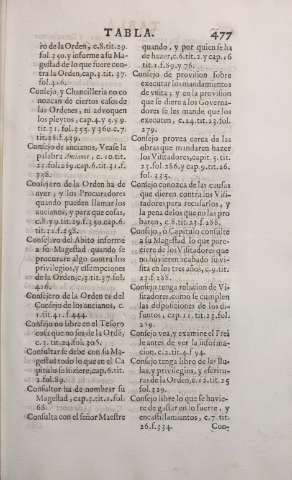 TABLA. 477
ro de la Orden, c.8.tit.29.
fol.350.y informe a su Ma-
gestad de lo que fuere con-
tra la Orden, cap.3.tit.37.
fol.416.
Consejo, y Chancilleria no co
nozcan de ciertos casos de
las Ordenes, ni advoquen
los pleytos, cap.4.y 5.y 9.
tit.31.fol.355.y 360.c.7.
tit.28.f.439.
Consejo de ancianos, Vease la
palabra Ancianos, c.10.tit.
fol.
378.
Consejero de la Orden ha de
aver, y los Procuradores
quando pueden llamar los
ancianos, y para que cosas,
c.8.y 9.tit.29.f.350.cap.6.
tit.32.f.358.
Consejero del Abito informe
a su Magestad quando se
procurare algo contra los
privilegios, y essempciones
de la Orden, c.3.tit.37.fol.
416.
Consejero de la Orden es del
Consejo de los ancianos, c.
1.tit.41.f.444.
Consejo no libre en el Tesoro
cosa que no sea de la Ordē,
c.3.tit.24.fol.306.
Consultarse debe con su Ma-
gestad todo lo que en el Ca
pitulo se hiziere, cap.6.tit.
2.fol.89.
Consultor ha de nombrar su
Magestad, cap.2.tit.1.fol.
68.
Consulta con el señor Maestre
quando, y por quien se ha
de hazer, c.6.tit.2.y cap.16
tit.1.f.89.y 76.
Consejo de provision sobre
executar los mandamientos
de visita; y en la provision
que se diere a los Governa-
dores se les mande que los
executen, c.24.tit.23.fol.
279.
Consejo provea cerca de las
obras que mandaren hazer
los Visitadores, capit.5.tit.
23.fol.286.y cap.9.tit.26.
fol.335.
Consejo conozca de las causas
que dieren contra los Visi-
tadores para recusarlos, y
la pena de los que no las pro
baren, c.8.tit.23.f.288.
Consejo, o Capitulo consulte
a su Magestad lo que pare-
ciere de los Visitadores que
no huvieren acabado su vi-
sita en los tres años, c.9.tit.
23.f.288.
Consejo tenga relacion de Vi-
sitadores, como se cumplen
las disposiciones de los di-
funtos, cap.11.tit.23.fol.
289.
Consejo vea, y examine el Frei
le antes de ver la informa-
cion, c.2.tit.4.f.94.
Consejo tenga libro de las Bu-
las, y privilegios, y escritu-
ras de la Orden, c.12.tit.25
fol.329.
Consejo libre lo que se huvie-
re de gastar en lo fuerte, y
encastillamientos, c.7.tit.
26.f.334. Con-